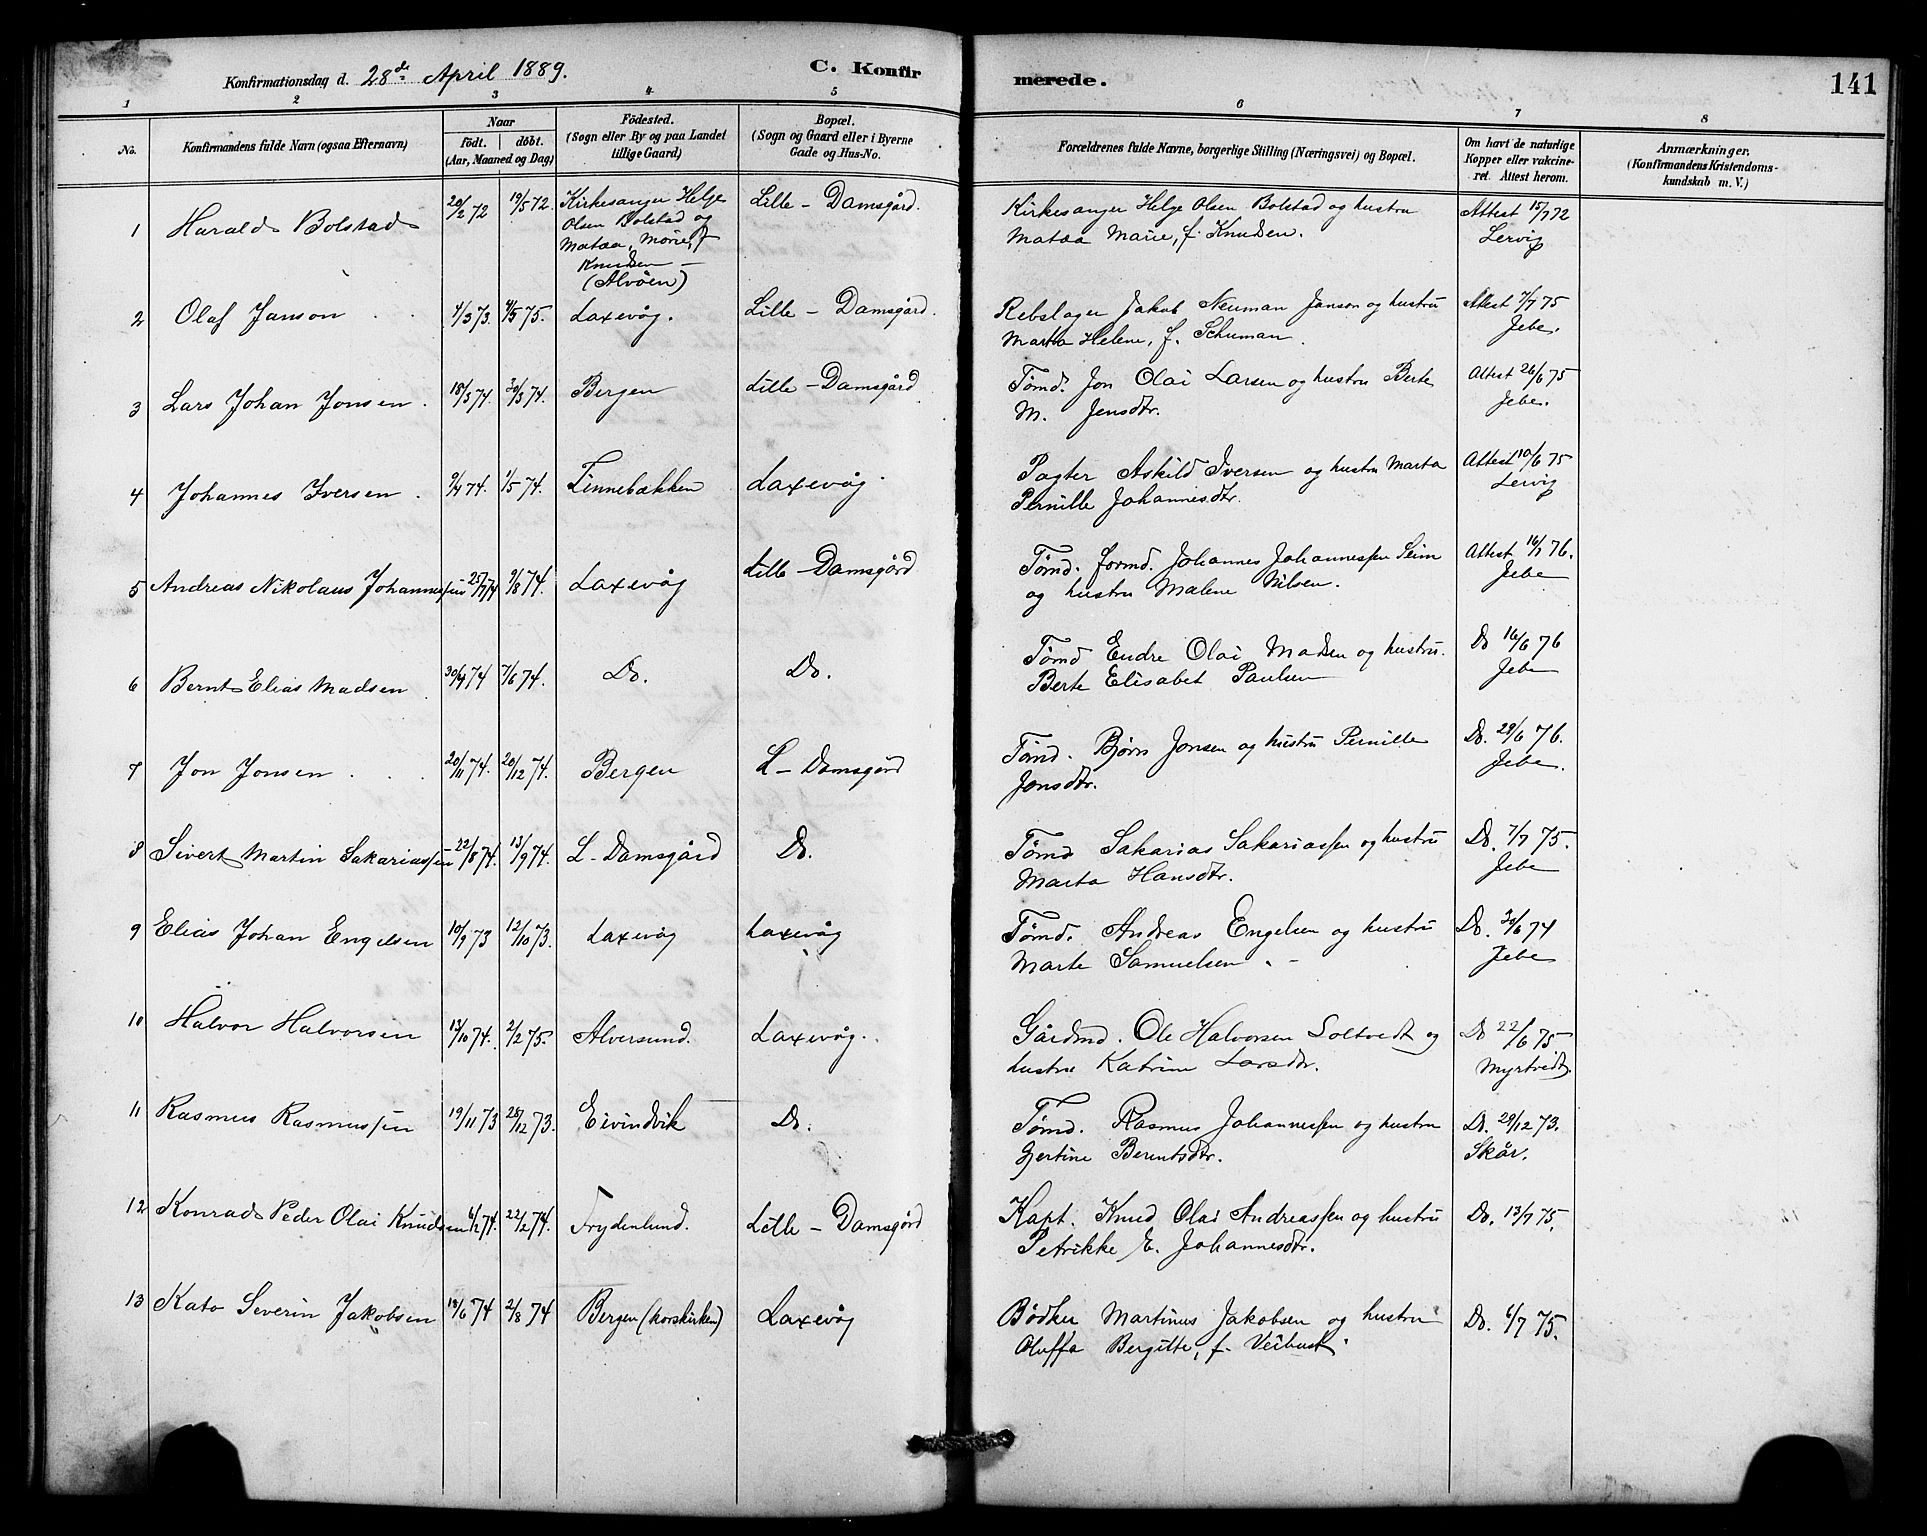 Konfirmationsdag d. 28de April 1889. C. Konfirmerede. 141
1 2 3 4 5 6 7 8
No. Konfirmandens fulde Navn (ogsaa Efternavn) Naar födt. döbt. (Aar, Maaned og Dag) Födested. (Sogn eller By og paa Landet tillige Gaard) Bopæl. (Sogn og Gaard eller i Byerne Gade og Hus-No. Forældrenes fulde Navne, borgerlige Stilling (Næringsvei) og Bopæl. Om havt de naturlige Kopper eller vakcineret. Attest herom. Anmærkninger. (Konfirmandens Kristendomskundskab m. V.)
1 Harald Bolstad 20/2 72 19/5 72. Kirkesanger Helge Olsen Bolstad og Matæa, Marie, f Knudsen – (Alvöen) Lille – Damsgård. Kirkesanger Helge Olsen Bolstad og hustru
Matæa Marie, f. Knudsen. Attest 15/7 72 Lervig
2 Olaf Janson 4/3 73. 4/5 75. Laxevåg. Lille – Damsgård. Rebslager Jakob Neuman Janson og hustru
Marta Helene, f. Schuman. Attest 7/7 75 Jebe.
3 Lars Johan Jonsen. 18/3 74. 30/3 74. Bergen Lille – Damsgård Tømd. Jon Olai Larsen og hustru Berte
M. Jensdtr. Attest 26/6 75 Jebe.
4 Johannes Iversen. 9/4 74. 1/5 74. Finnebækken Laxevåg. Pagter Askild Iversen og hustru Marta
Pernille Johannesdtr. Attest 10/6 75 Lervig
5 Andreas Nikolaus Johannessen 25/7 74 9/8 74. Laxevåg Lille – Damsgård Tømd. formd. Johannes Johannessen Seim
og hustru Malene Nilsen. Attest 16/1 76. Jebe
6 Bernt Elias Madsen 30/4 74 7/6 74. Do. Do. Tømd Endre Olai Madsen og hustru.
Berte Elisabet Paulsen Do 16/6 76 Jebe
7 Jon Jonsen 20/11 74. 20/12 74. Bergen L – Damsgård Tømd. Bjørn Jonsen og hustru Pernille
Jonsdtr. Do. 28/6 76. Jebe.
8 Sivert Martin Sakariassen – 22/8 74. 13/9 74. L – Damsgård Do. Tømd Sakarias Sakariassen og hustru
Marta Hansdtr. Do. 7/7 75. Jebe
9 Elias Johan Engelsen 10/9 73 12/10 73. Laxevåg Laxevåg Tømd. Andreas Engelsen og hustru
Marte Samuelsen Do. 30/6 74 Jebe
10 Halvor Halvorsen 13/10 74. 2/2 75. Alversund. Laxevåg. Gårdmd. Ole Halvorsen Soltvedt og
hustru Katrine Larsdtr. Do 22/6 75 Myrtvedt.
11 Rasmus Rasmussen 19/11 73 28/12 73. Eivindvik Do. Tømd. Rasmus Johannessen og hustru
Gjertine Berentsdtr. Do. 29/12 73. Skår.
12 Konrad Peder Olai Knudsen 6/2 74. 22/2 74. Frydenlund. Lille – Damsgård Kapt. Knud Olai Andreassen og hustru
Petrikke E. Johannesdtr. Do. 13/7 75.
13 Kato Severin Jakobsen 18/6 74 2/8 74 Bergen (Korskirken) Laxevåg Bödker Martinus Jakobsen og hustru
Oluffa Bergitte, f. Do. 6/7 75.